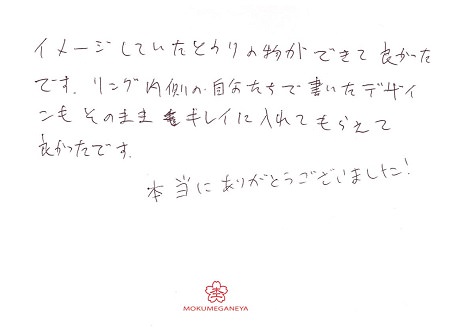 イメージしていたとうりの物ができて良かった
です。リング内側の自分たちで書いたデザイ
ンもそのままキレイに入れてもらえて
良かったです。
本当にありがとうございました!
MOKUMEGANEYA